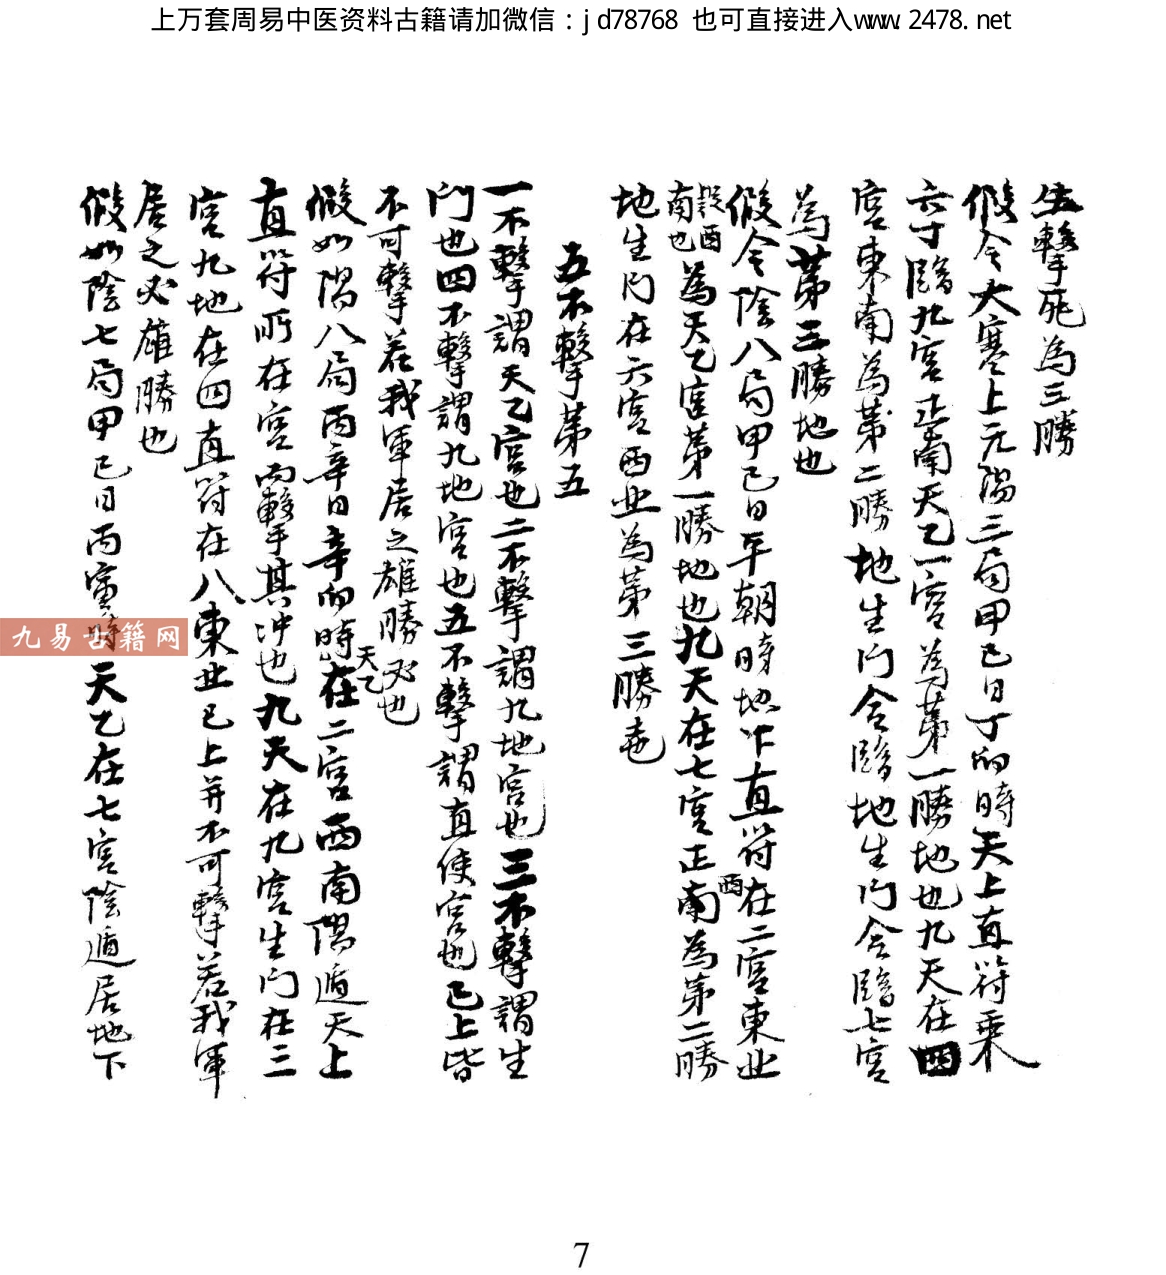 上万套周易中医资料古籍请加微信：jd78768 也可直接进入www.2478.net
生擊死為三勝
假令大寒上元陽三局甲己日丁卯時天上直符乘
六丁臨九宮正南天乙一宮為第一勝地也九天在四
宮東南為第二勝地生门合臨地生门合臨七宮
為第三勝地也
假令陰八局甲己日平朝時地下直符在二宮東北
誤酉南也為天乙宮第一勝地也九天在七宮正南為第二勝
酉
地生门在六宮西北為第三勝也
五不擊第五
一不擊謂天乙宮也二不擊謂九地宮也三不擊謂生
门也四不擊謂九地宮也五不擊謂直使宮也已上皆
不可擊若我軍居之雄勝必也
假如陽八局丙辛日辛卯時天乙在二宮西南陽遁天上
直符所在宮而擊其冲也九天在九宮生门在三
宮九地在四直符在八東北已上并不可擊若我軍
居之必雄勝也
假如陰七局甲己日丙寅時天乙在七宮陰遁居地下
九易古籍网
7